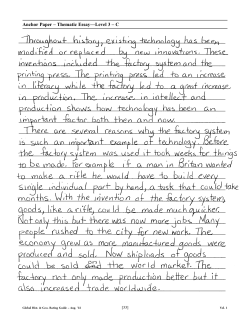 Anchor Paper – Thematic Essay—Level 3 – C
Throughout history, existing technology has been
modified or replaced by new innovations. These
inventions included the factory system and the
printing press. The printing press led to an increase
in literacy while the factory led to a great increase
in production. The increase in intellect and
production shows how technology has been an
important factor both then and now.
There are several reasons why the factory system
is such an important example of technology. Before
the factory system was used it took weeks for things
to be made. For example if a man in Britain wanted
to make a rifle he would have to build every
single individual part by hand, a task that could take
months. With the invention of the factory system,
goods, like a rifle, could be made much quicker.
Not only this but there was now more jobs. Many
people rushed to the city for new work. The
economy grew as more manufactured goods were
produced and sold. Now shiploads of goods
could be sold and the world market. The
factory not only made production better but it
also increased trade worldwide.
Global Hist. & Geo. Rating Guide – Aug. '14
[35]
Vol. 1